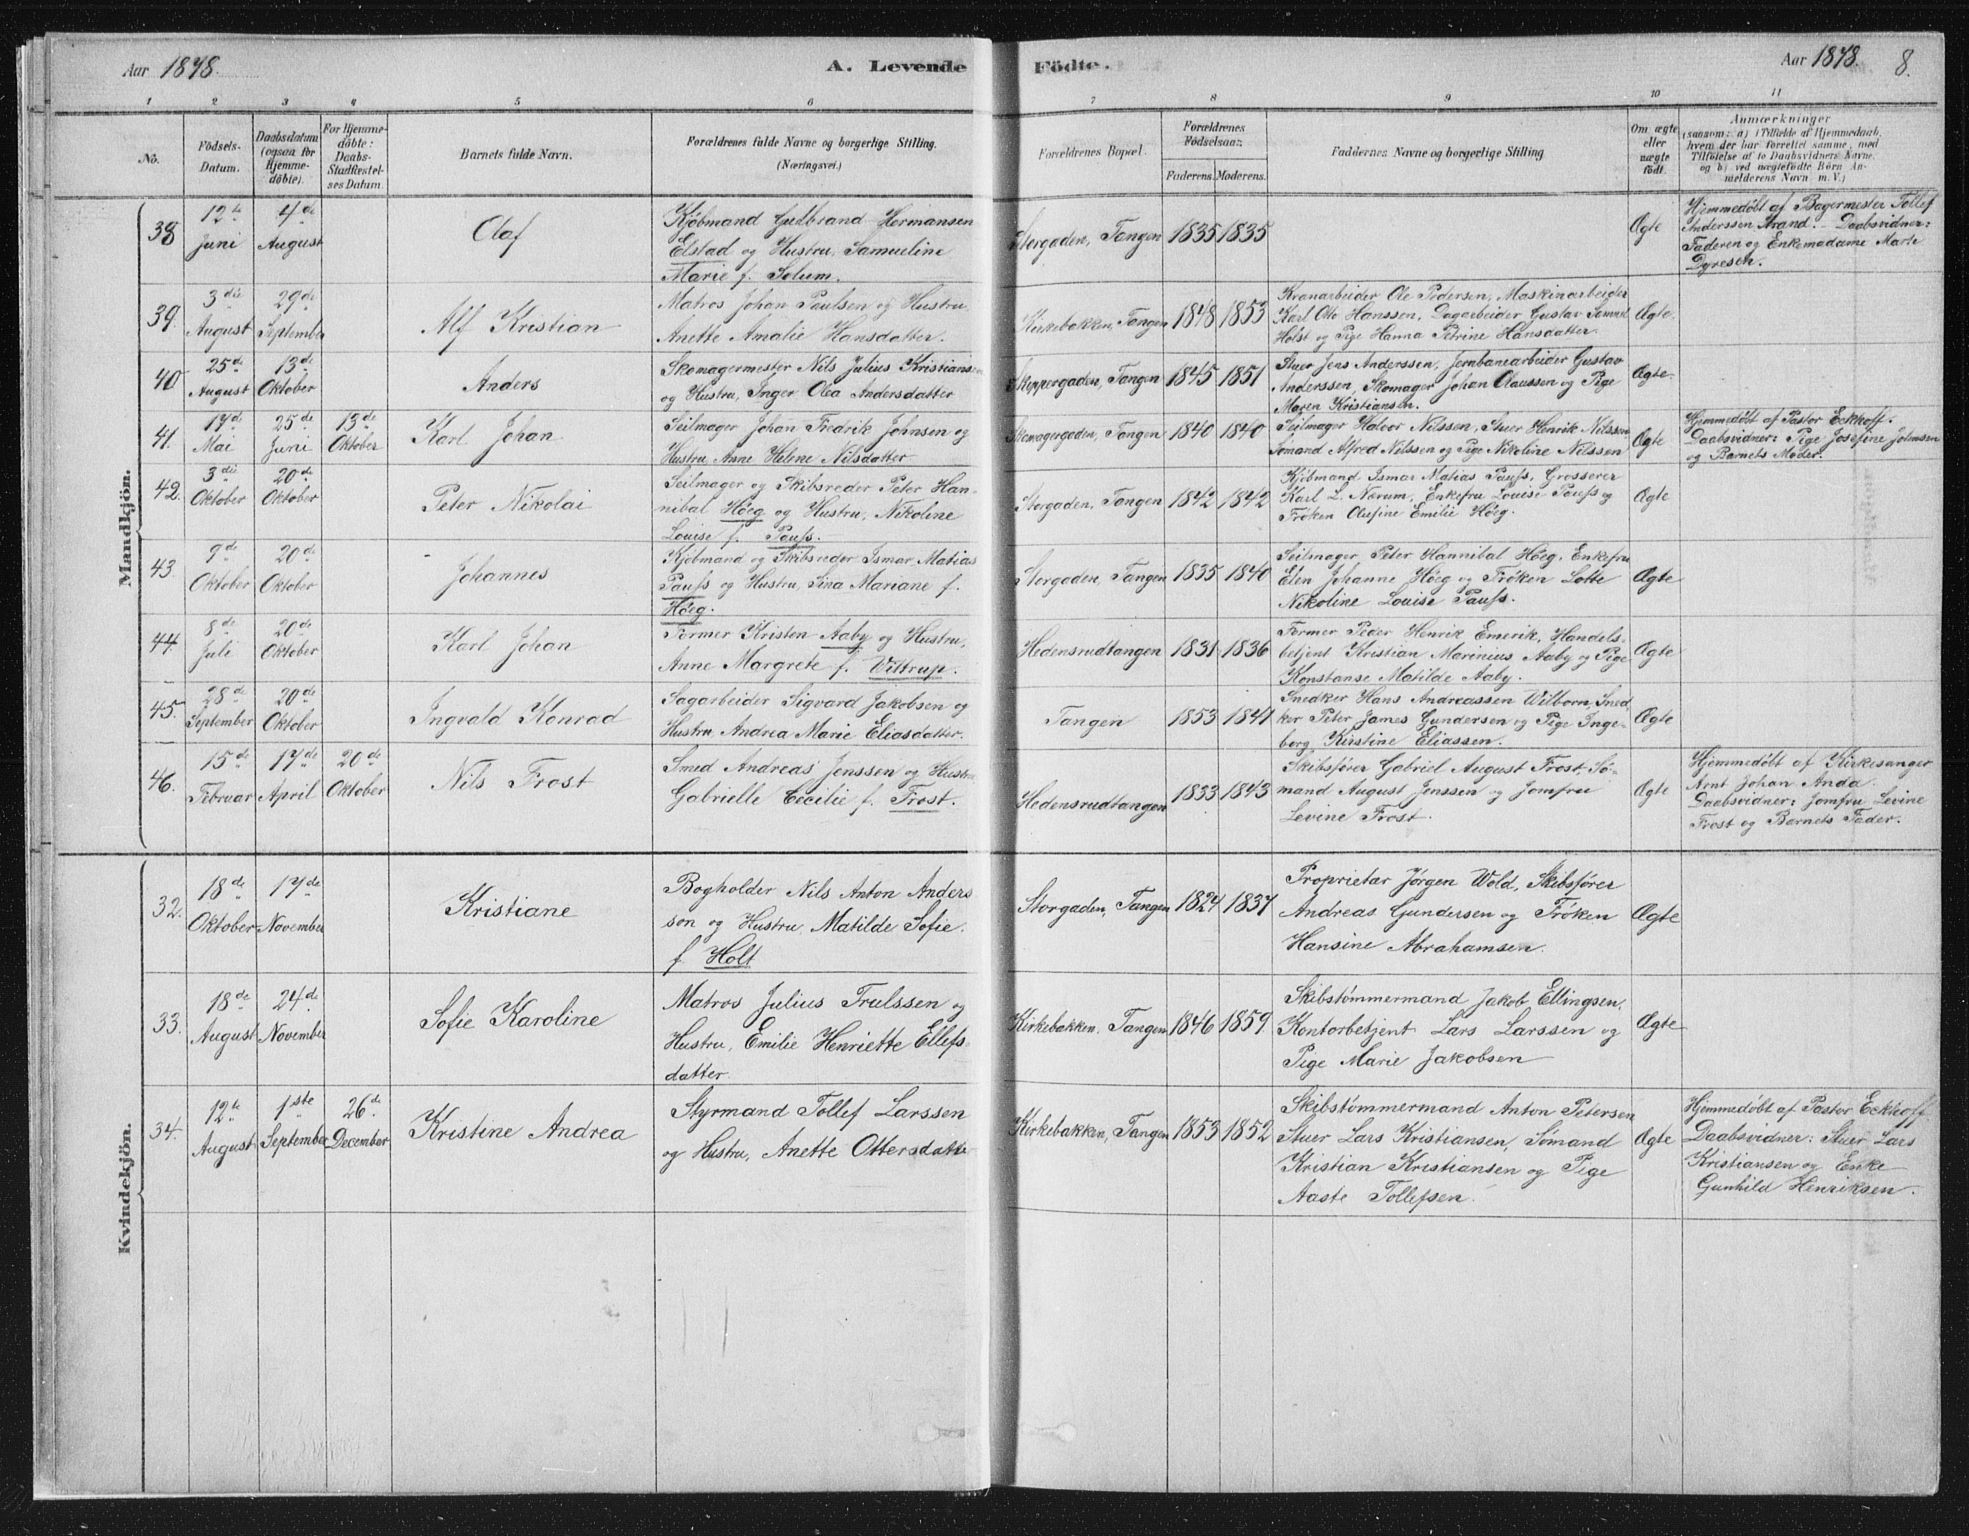 Aar 1878.
A. Levende Födte.
Aar 1878.
8.
1 2 3 4 5 6 7 8 9 10 11
No.
Födsels-
Datum.
Daabsdatum
(ogsaa for
Hjemme-
döbte).
For Hjemme-
döbte:
Daabs-
Stadfæstel-
ses Datum.
Barnets fulde Navn.
Forældrenes fulde Navne og borgerlige Stilling.
(Næringsvei.)
Forældrenes Bopæl.
Forældrenes
Födselsaar.
Faderens. Moderens.
Faddernes Navne og borgerlige Stilling
Om ægte
eller
uægte
födt.
Anmærkninger
(saasom: a) i Tilfælde af Hjemmedaab,
hvem der har forrettet samme, med
Tilföielse af to Daabsvidners Navne,
og b) ved uægtefödte Börn An-
melderens Navn m. V.)
Mandkjön.
38
12te
Juni
4de
August
Olaf
Kjöbmand Gulbrand Hermansen
Elstad og Hustru, Samueline
Marie f. Solum.
Storgaden, Tangen
1835 1835
Ægte
Hjemmedöbt af Bagermester Tollef
Anderssen Strand. Daabsvidner:
Faderen og Enkemadame Marte
Dyresen.
39.
3die
August
29de
September
Alf Kristian
Matros Johan Paulsen og Hustru
Anette Amalie Hansdatter.
Kirkebakken, Tangen
1848 1853
Kranarbeider Ole Pedersen, Maskinarbeider
Karl Oto Hanssen, Dagarbeider Gustav Samuel
Holst og Pige Hanna Petrine Hansdatter.
Ægte.
40
25de
August
13de
Oktober
Anders
Skomagermester Nils Julius Kristiansen
og Hustru, Inger Olea Andersdatter
Skippergaden, Tangen
1845 1851
Stuer Jens Anderssen, Jernbanearbeider Gustav
Anderssen, Skomager Johan Olaussen og Pige
Maren Kristiansen.
Ægte.
41.
17de
Mai
25de
Juni
13de
Oktober
Karl Johan
Seilmager Johan Fredrik Johnsen og
Hustru Anne Helene Nilsdatter
Skomagergaden, Tangen
1840 1840
Seilmager Halvor Nilssen, Stuer Henrik Nilssen
Sömand Alfred Nilssen og Pige Nikoline Nilssen
Ægte
Hjemmedöbt af Pastor Eckhoff.
Daabsvidner: Pige Josefine Johnsen
og Barnets Moder.
42.
3die
Oktober
20de
Oktober
Peter Nikolai
Seilmager og Skibsreder Peter Han-
nibal Höeg og Hustru, Nikoline
Louise f. Pauss.
Storgaden, Tangen
1842 1842
Kjöbmand Ismar Matias Pauss, Grosserer
Karl L. Nerum, Enkefru Louise Pauss og
Fröken Olufine Emilie Höeg.
Ægte
43.
9de
Oktober
20de
Oktober
Johannes
Kjöbmand og Skibsreder Ismar Matias
Pauss og Hustru, Sina Mariane f.
Höeg.
Storgaden, Tangen
1835 1840
Seilmager Peter Hannibal Höeg, Enkefru
Elen Johanne Höeg og Fröken Lotte
Nikoline Louise Pauss.
Ægte
44.
8de
Juli
20de
Oktober
Karl Johan
Former Kristen Aaby og Hustru,
Anne Margrete f. Vittrup.
Hedensrudtangen
1831 1836
Former Peder Henrik Emerik, Handels-
betjent Kristian Marinius Aaby og Pige
Konstanse Matilde Aaby.
Ægte
45.
28de
September
20de
Oktober
Ingvald Konrad
Sagarbeider Sigvard Jakobsen og
Hustru Andrea Marie Eliasdatter.
Tangen
1853 1847
Snedker Hans Andreassen Wilborn, Sned
ker Peter James Gundersen og Pige Inge-
borg Kirstine Eliassen.
Ægte
46.
15de
Februar
17de
April
20de
Oktober
Nils Frost
Smed Andreas Jenssen og Hustru
Gabrielle Cecilie f. Frost.
Hedensrudtangen
1833 1843
Skibsförer Gabriel August Frost, Sö-
mand August Jenssen og Jomfru
Levine Frost.
Ægte
Hjemmedöbt af Kirkesanger
Arnt Johan Anda.
Daabsvidner: Jomfru Levine
Frost og Barnets Fader.
Kvindekjön.
32.
18de
Oktober
17de
November
Kristiane
Bogholder Nils Anton Anders
son og Hustru, Matilde Sofie
f. Holt
Storgaden, Tangen
1824 1837
Proprietær Jörgen Wold, Skibsförer
Andreas Gundersen og Fröken
Hansine Abrahamsen.
Ægte
33.
18de
August
24de
November
Sofie Karoline
Matros Julius Trulssen og
Hustru, Emilie Henriette Ellefs-
datter.
Kirkebakken, Tangen
1846 1859.
Skibstömmermand Jakob Ellingsen,
Kontorbetjent Lars Larssen og
Pige Marie Jakobsen
Ægte
34.
12te
August
1ste
September
26de
December
Kristine Andrea
Styrmand Tollef Larssen
og Hustru, Anette Ottersdatter
Kirkebakken, Tangen
1853 1852
Skibstömmermand Anton Petersen
Stuer Lars Kristiansen, Sömand
Kristian Kristiansen og Pige
Aaste Tollefsen.
Ægte
Hjemmedöbt af Pastor Eckhoff.
Daabsvidner: Stuer Lars
Kristiansen og Enke
Gunhild Henriksen.